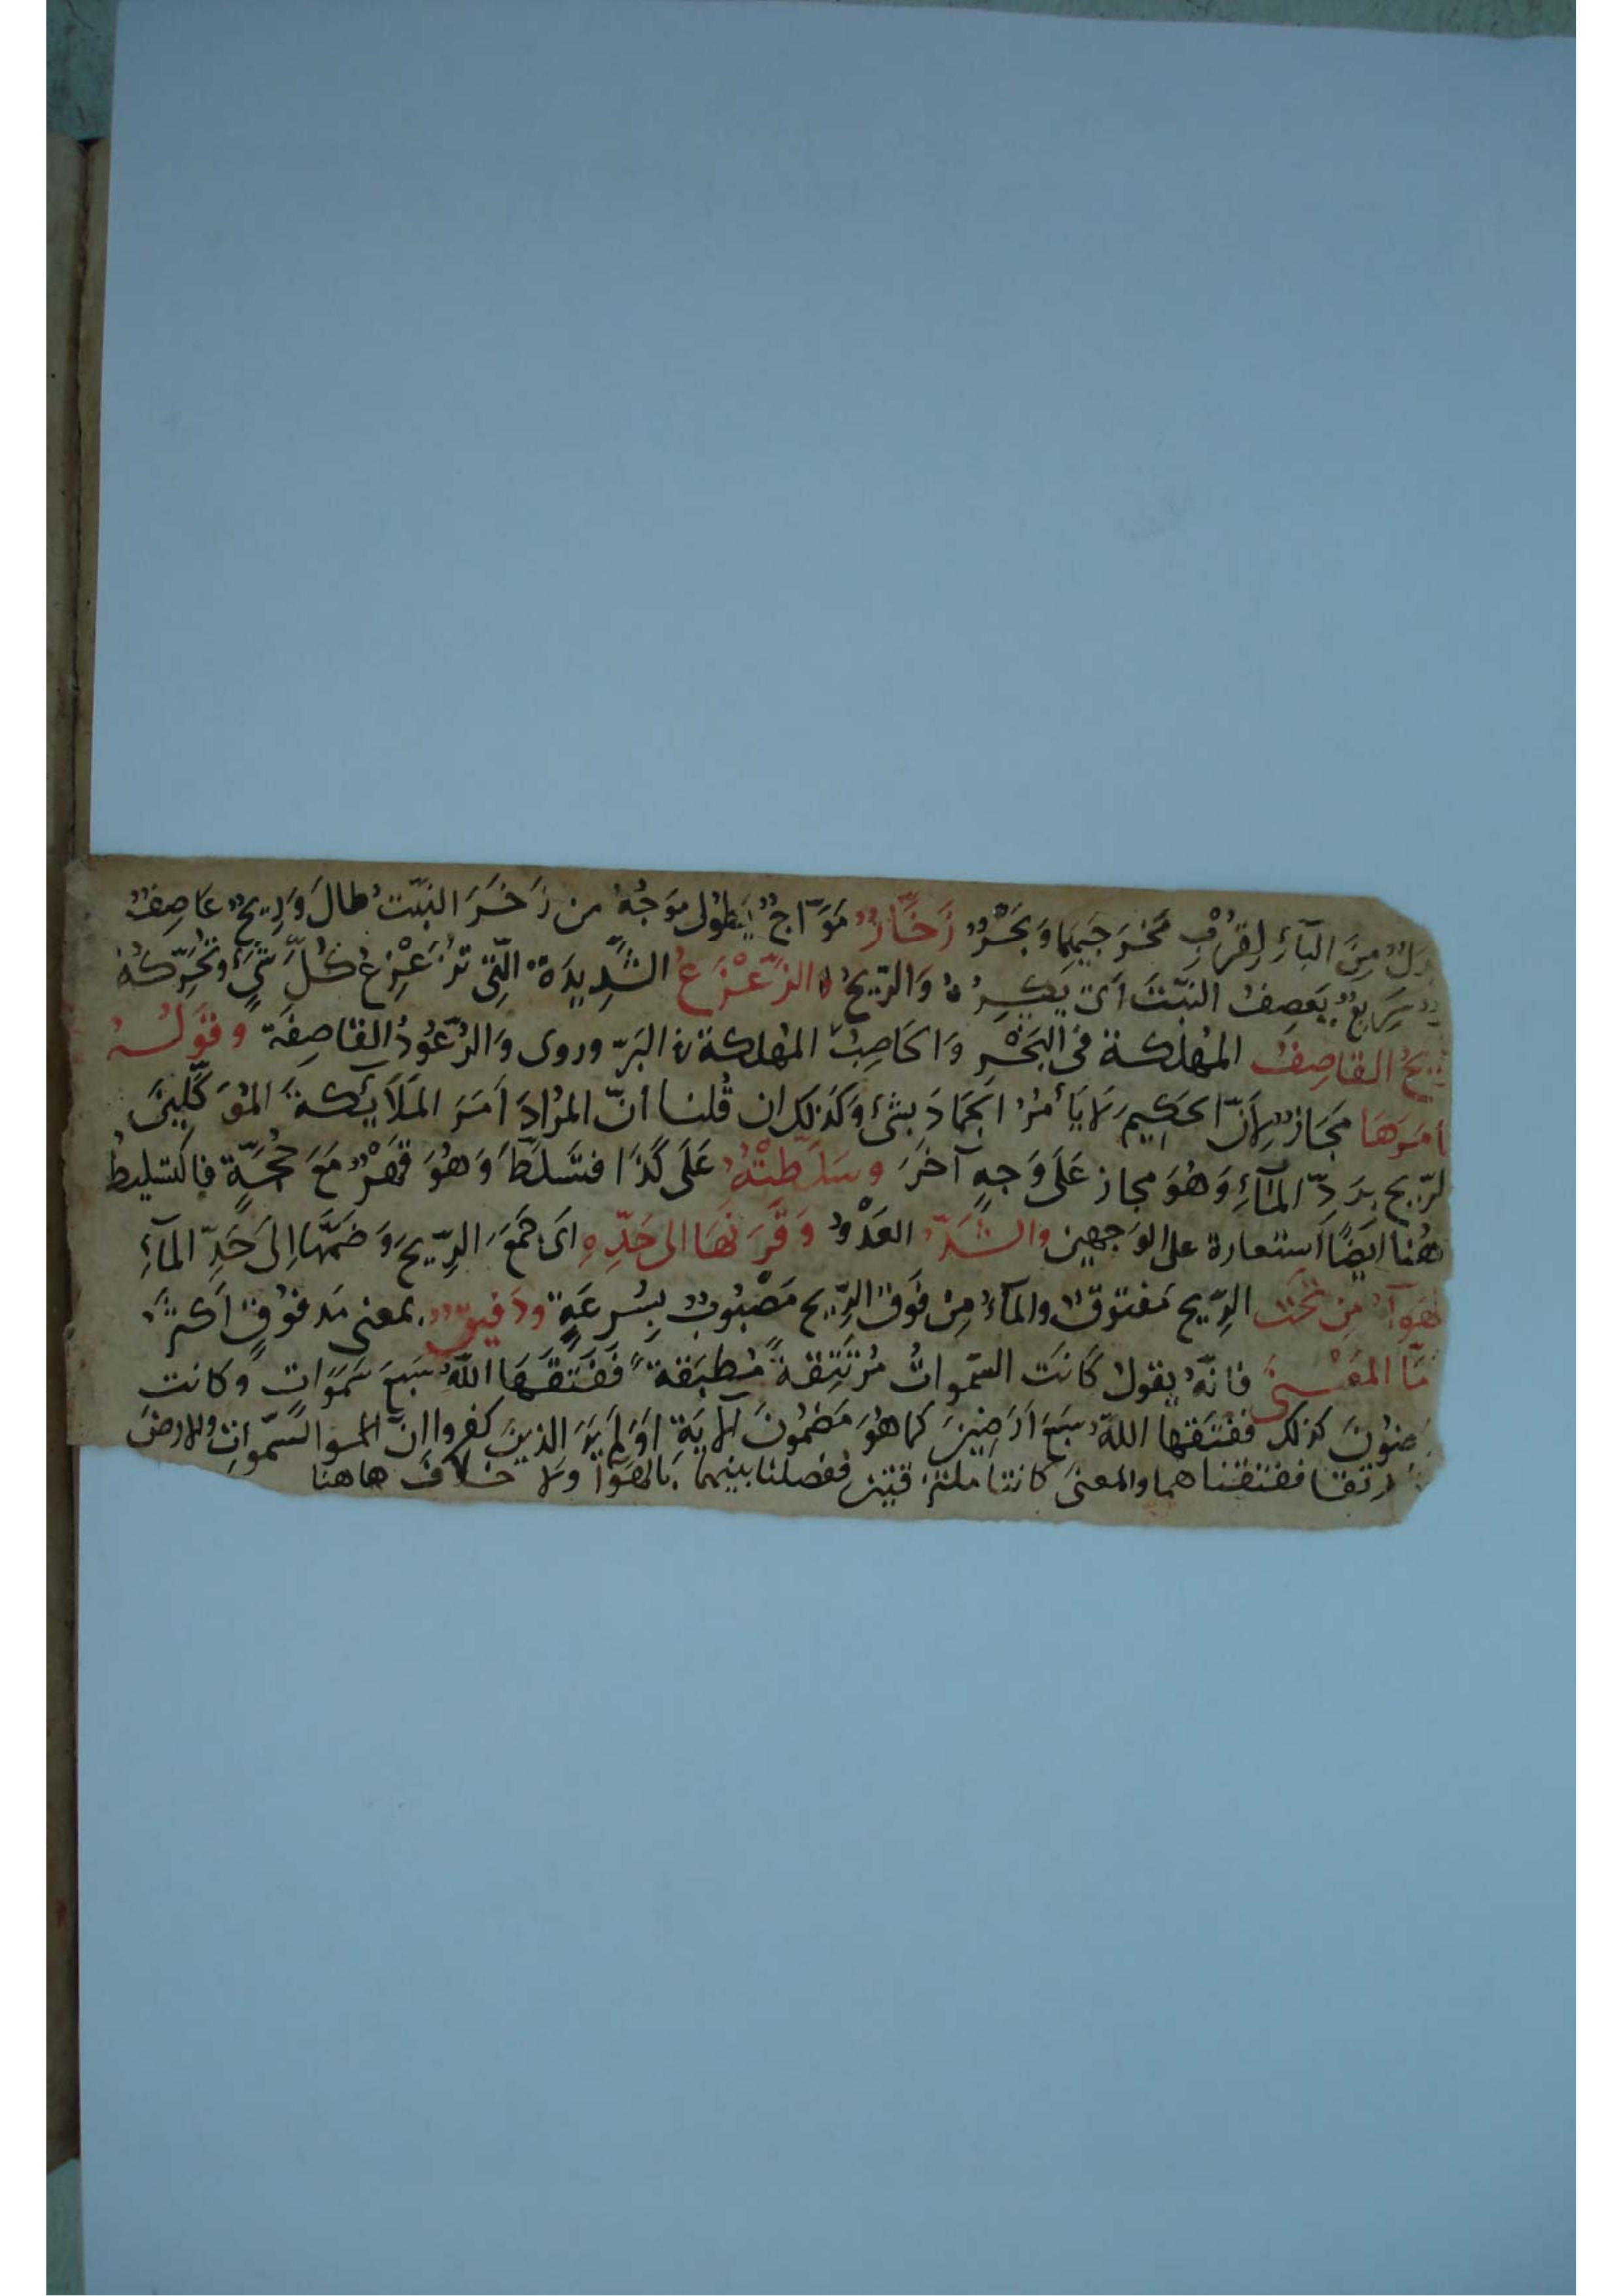 بدل من البآءِ لِقُرْبِ مَخْرَجَيهِما وَبَحْرٌ زَخّارٌ مَوّاجٌ يَطُول مَوجُهُ من زَخَرَ النبتُ طالَ وَرِيحٌ عَاصِفٌ
سَرِيعٌ يَعصِفُ النبْتَ اَىْ يكسِرُهُ وَالرّيحُ الزّعْزَعُ الشَّدِيدَةُ الّتِى تُزَعْزِعُ كُلَّ شَىْءٍ وَتُحَرِّكُهُ
رِيحُ القاصِفُ المُهْلكة فى البَحْرِ وَالحَاصِبُ المهْلكة فى البَرّ وروى وَالرُّعُودُ القاصِفَة وقَولُهُ
اَمَرَهَا مَجَازٌ لِاَنَّ الحَكِيمَ لَا يَأمُرُ الجَمَادَ بشَىْءٍ وَكَذلك ان قُلنا انّ المرُادَ اَمَرَ المَلَائِكةَ المُوَكَّلِينَ
لرّيح بِرَدِّ المآءِ وَهُوَ مجاز عَلَى وَجهٍ آخَرَ وسَلّطْتُهُ عَلَى كَذَا فتَسَلّطَ وَهُوَ قَهْرٌ مَعَ حُجّةٍ فالتسليطُ
هُنا ايضًا استعارة على الوَجهين والشَدُّ العَدْوُ وَقَرَنَهَا الى حَدِّهِ اىْ جَمَعَ الرِّيحَ وَضَمَّهَا اِلَى حَدِّ المآءِ
لهَوآءُ مِن تَحْتِ الرِّيح مَفتوقٌ والمآءُ مِنْ فَوقِ الرِّيح مَصْبُوبٌ بِسُرعَةٍ ودَفيقٌ بمعنى مَدفوُقٍ اَكثرُ
مّا المَعْنى فانّهُ يقول كَانَت السّمواتُ مُرْتَتِقةً مُطبَقةً فَفَتَقَهَا اللهُ سَبعَ سَمَوَاتٍ وَكانت
رَضوُنَ كذلك ففتَقهَا اللهُ سَبعَ اَرَضِينَ كما هُوَ مَضمُونَ الآيَةِ اوَلَم يَرَ الذينَ كفروا انّ السّمواتِ والارضَ
رتقا ففتقناهما والمعنى كانتا ملتزقتين ففصلنا بينهما بالهَوآءِ ولا خلاف هاهنا